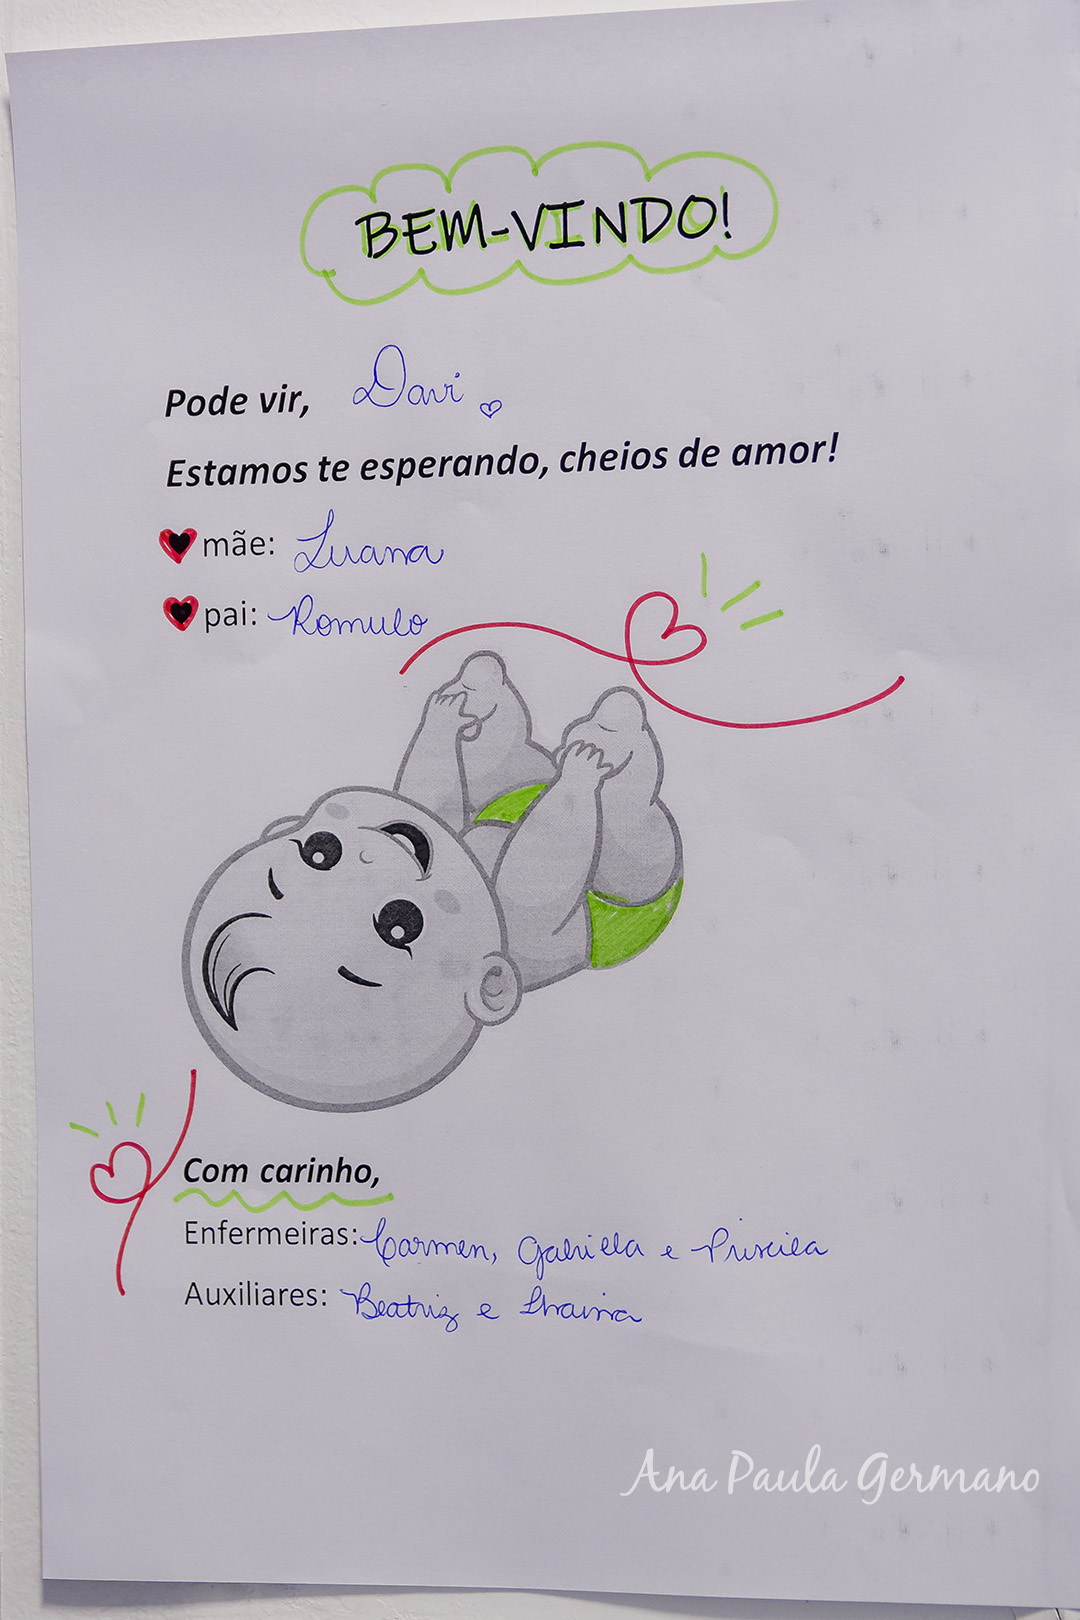 BEM-VINDO!
Pode vir, Davi
Estamos te esperando, cheios de amor!
mãe: Luana
pai: Romulo
Com carinho,
Enfermeiras: Carmen, Gabriella e Priscila
Auxiliares: Beatriz e
Ana Paula Germano